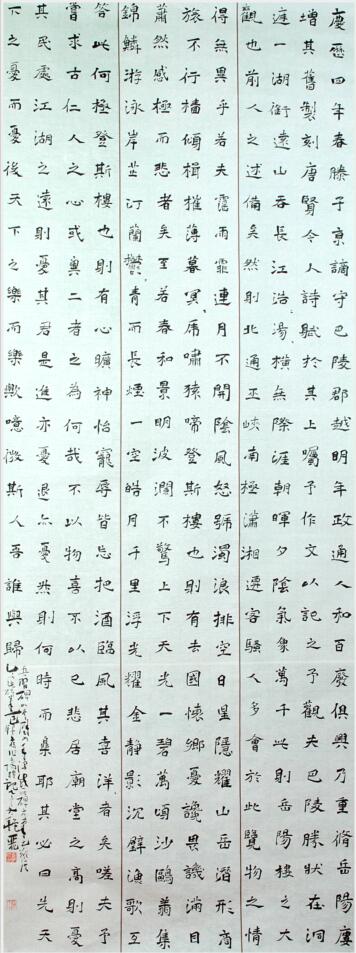 慶曆四年春滕子京謫守巴陵郡越明年政通人和百廢俱興乃重脩岳陽樓
增其舊製刻唐賢今人詩賦於其上囑予作文以記之予觀夫巴陵勝狀在洞
庭一湖銜遠山吞長江浩〻湯〻橫無際涯朝暉夕陰氣象萬千此則岳陽樓之大
觀也前人之述備矣然則北通巫峽南極瀟湘遷客騷人多會於此覽物之情
得無異乎若夫霪雨霏〻連月不開陰風怒號濁浪排空日星隱耀山岳潛形商
旅不行檣傾楫摧薄暮冥〻虎嘯猿啼登斯樓也則有去國懷鄉憂讒畏譏滿目
蕭然感極而悲者矣至若春和景明波瀾不驚上下天光一碧萬頃沙鷗翔集
錦鱗游泳岸芷汀蘭鬱〻青〻而長煙一空皓月千里浮光耀金靜影沉璧漁歌互
答此何極登斯樓也則有心曠神怡寵辱皆忘把酒臨風其喜洋〻者矣嗟夫予
嘗求古仁人之心或異二者之為何哉不以物喜不以己悲居廟堂之高則憂
其民處江湖之遠則憂其君是進亦憂退亦憂然則何時而樂耶其必曰先天
下之憂而憂後天下之樂而樂歟噫微斯人吾誰與歸